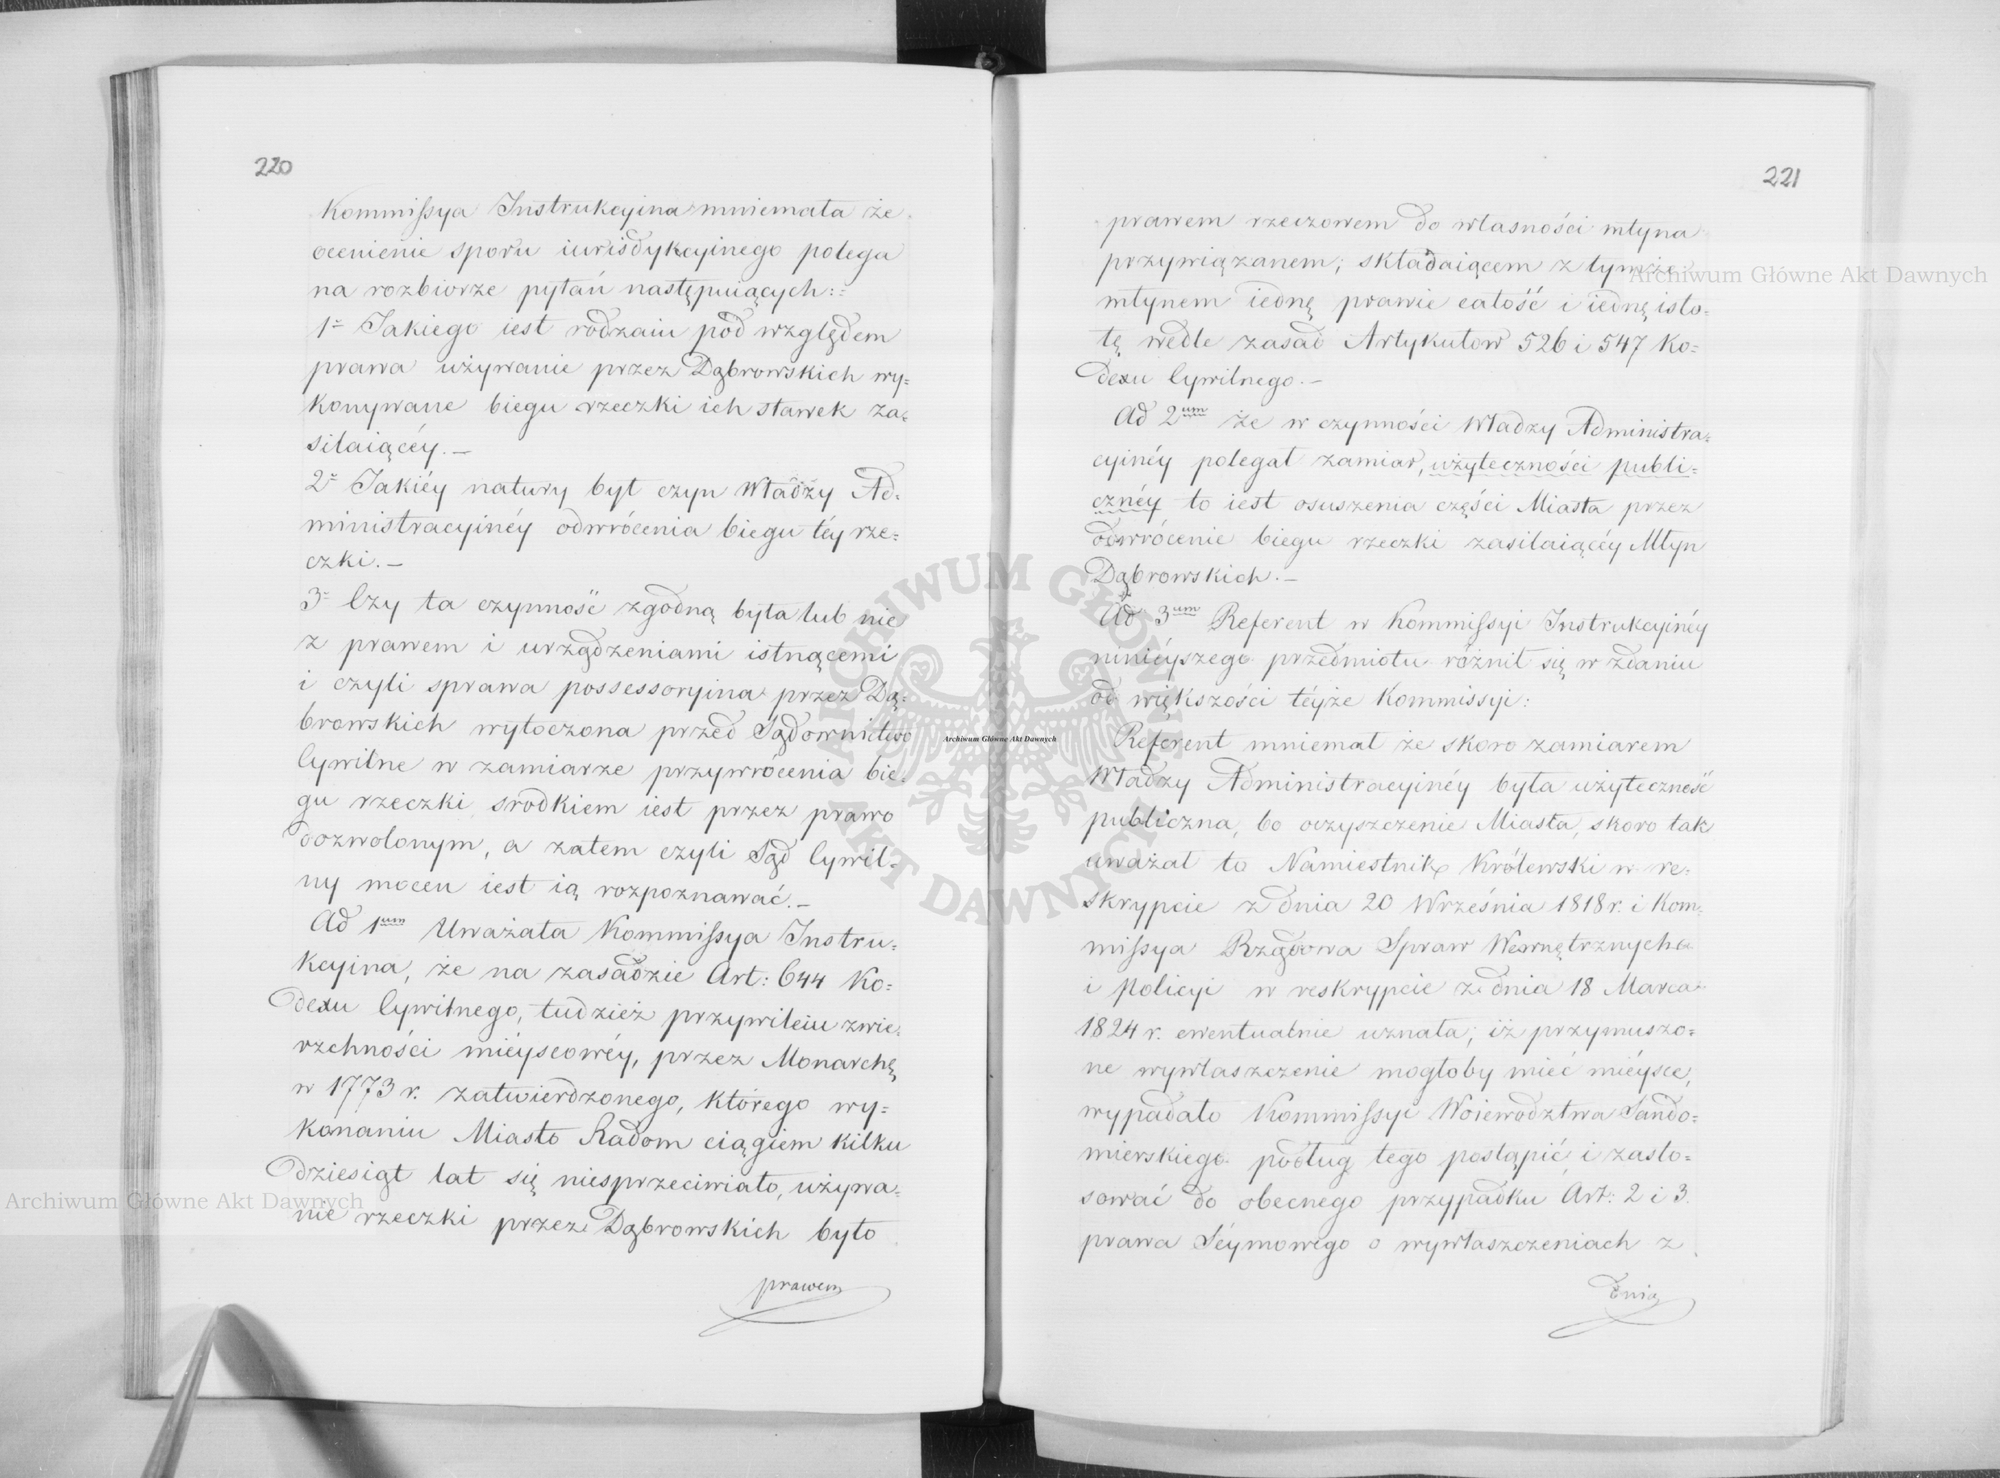 220
Kommissya Instrukcyina mniemała że
ocenienie sporu iurisdykcyinego polega
na rozbiorze pytań następuiących:
1= Jakiego iest rodzaiu pod względem
prawa używanie przez Dąbrowskich wy=
konywane biegu rzeczki ich stawek za=
silaiącéy.—
2= Jakiéy natury był czyn Władzy Ad=
ministracyinéy odwrócenia biegu téy rze=
czki.—
3= Czy ta czynność zgodną była lub nie
z prawem i urządzeniami istnącemi
i czyli sprawa possessoryina przez Dą=
browskich wytoczona przed Sądownictwo
Cywilne w zamiarze przywrócenia bie=
gu rzeczki srodkiem iest przez prawo
dozwolonym, a zatem czyli Sąd Cywil=
ny mocen iest ią rozpoznawać.—
Ad 1um Uważała Kommissya Instru=
kcyina, że na zasadzie Art: 644 Ko=
dexu Cywilnego, tudzież przywileiu zwie=
rzchności miéyscowéy, przez Monarchę
w 1773 r. zatwierdzonego, którego wy=
konaniu Miasto Radom ciągiem kilku
dziesiąt lat się niesprzeciwiało, używa=
nie rzeczki przez Dąbrowskich było
prawem
221
prawem rzeczowem do własności młyna
przywiązanem; składaiącem z tymże
młynem iednę prawie całość i iednę isto=
tę wedle zasad Artykułow 526 i 547 Ko=
dexu Cywilnego.—
Ad 2um że w czynności Władzy Administra=
cyinéy polegał zamiar, użyteczności publi=
cznéy to iest osuszenia części Miasta przez
odwrócenie biegu rzeczki zasilaiącéy Młyn
Dąbrowskich.—
Ad 3um Referent w Kommissyi Instrukcyinéy
ninieyszego przedmiotu różnił się w zdaniu
od większości téyże Kommissyi:
Referent mniemał że skoro zamiarem
Władzy Administracyinéy była użyteczność
publiczna, bo oczyszczenie Miasta, skoro tak
uważał to Namiestnik Królewski w re=
skrypcie z dnia 20 Września 1818 r. i Kom=
missya Rządowa Spraw Wewnętrznych
i Policyi w reskrypcie z dnia 18 Marca
1824 r. ewentualnie uznała; iż przymuszo=
ne wywłaszczenie mogłoby mieć miéysce,
wypadało Kommissyi Woiewodztwa Sando=
mierskiego podług tego postąpić i zasto=
sować do obecnego przypadku Art: 2 i 3.
prawa Séymowego o wywłaszczeniach z
dnia
Archiwum Główne Akt Dawnych
Archiwum Główne Akt Dawnych
Archiwum Główne Akt Dawnych
ARCHIWUM GŁÓWNE AKT DAWNYCH